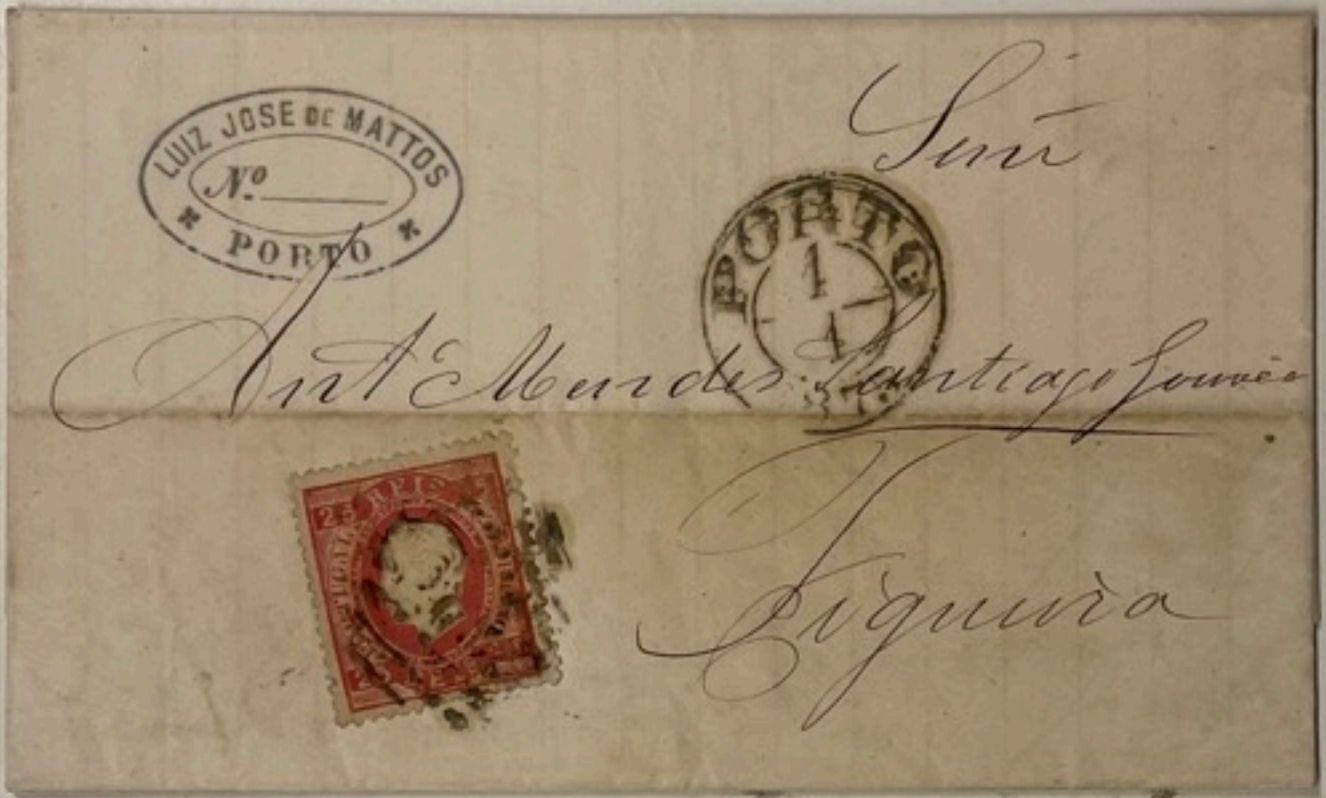 LUIZ JOSE DE MATTOS
Nº
PORTO
Senr
PORTO
1
4
Antº Mendes Santiago Gouvêa
Figueira
25 REIS
25